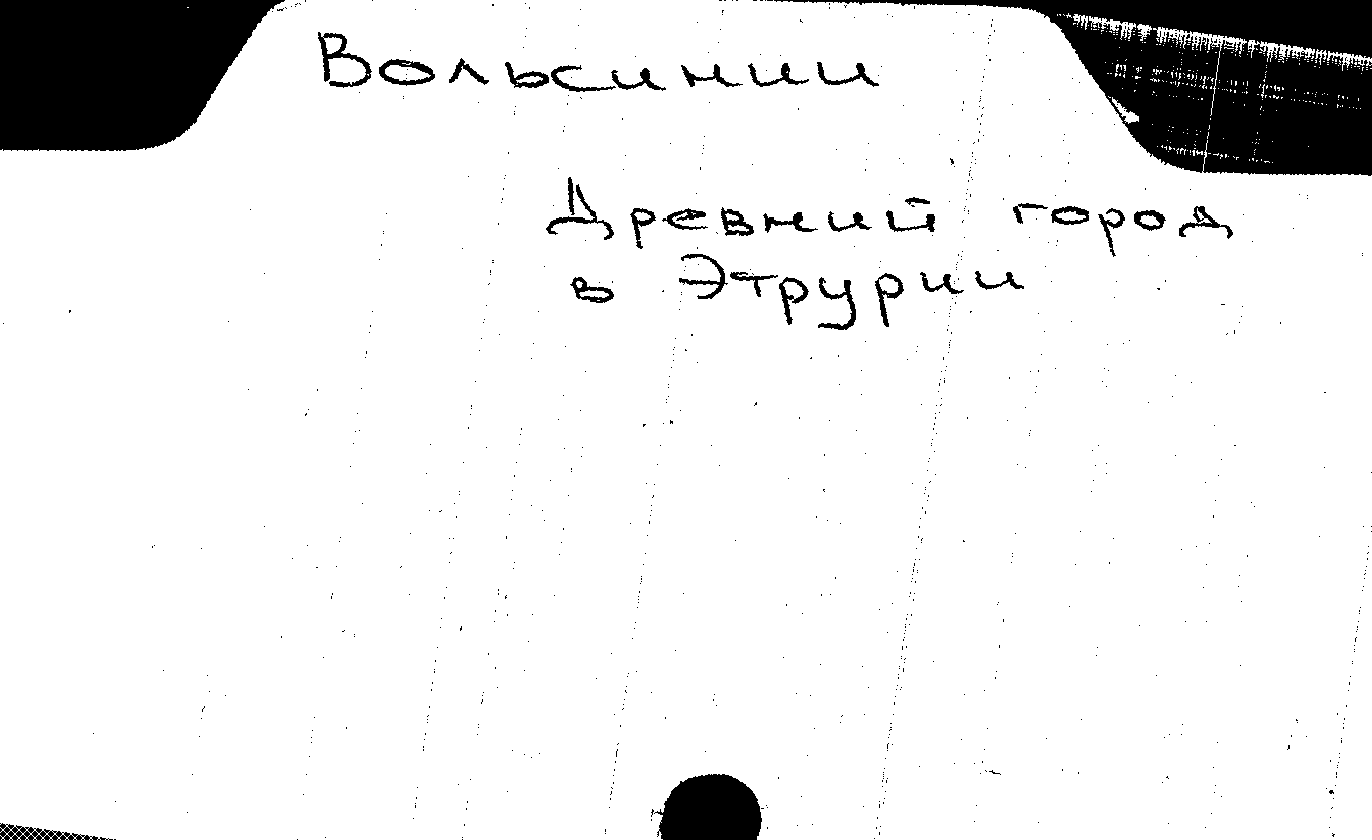 Вольсинии
Древний город
в Этрурии